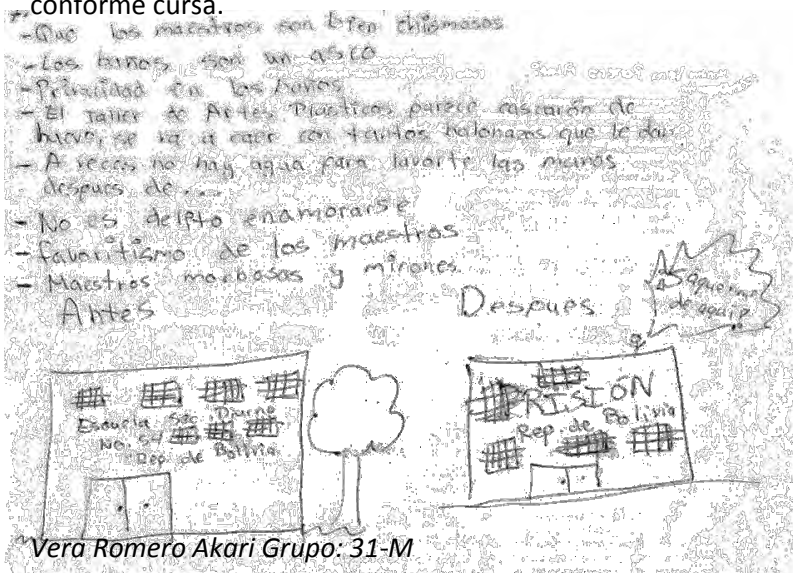 conforme cursa.
- Que los maestros son bien chismosos
- Los baños son un asco
- Privacidad en los baños
- El Taller de Artes Plasticas parece cascarón de
huevo, se va a caer con tantos balonazos que le dan
- A veces no hay agua para lavarte las manos
despues de...
- No es delito enamorarse
- favoritismo de los maestros
- Maestros morbosos y mirones
Antes
Despues
Saquenme
de aquip.
Escuela Sec. Diurno
No. 54
Rep. de Bolivia
PRISIÓN
Rep. de Bolivia
Vera Romero Akari Grupo: 31-M